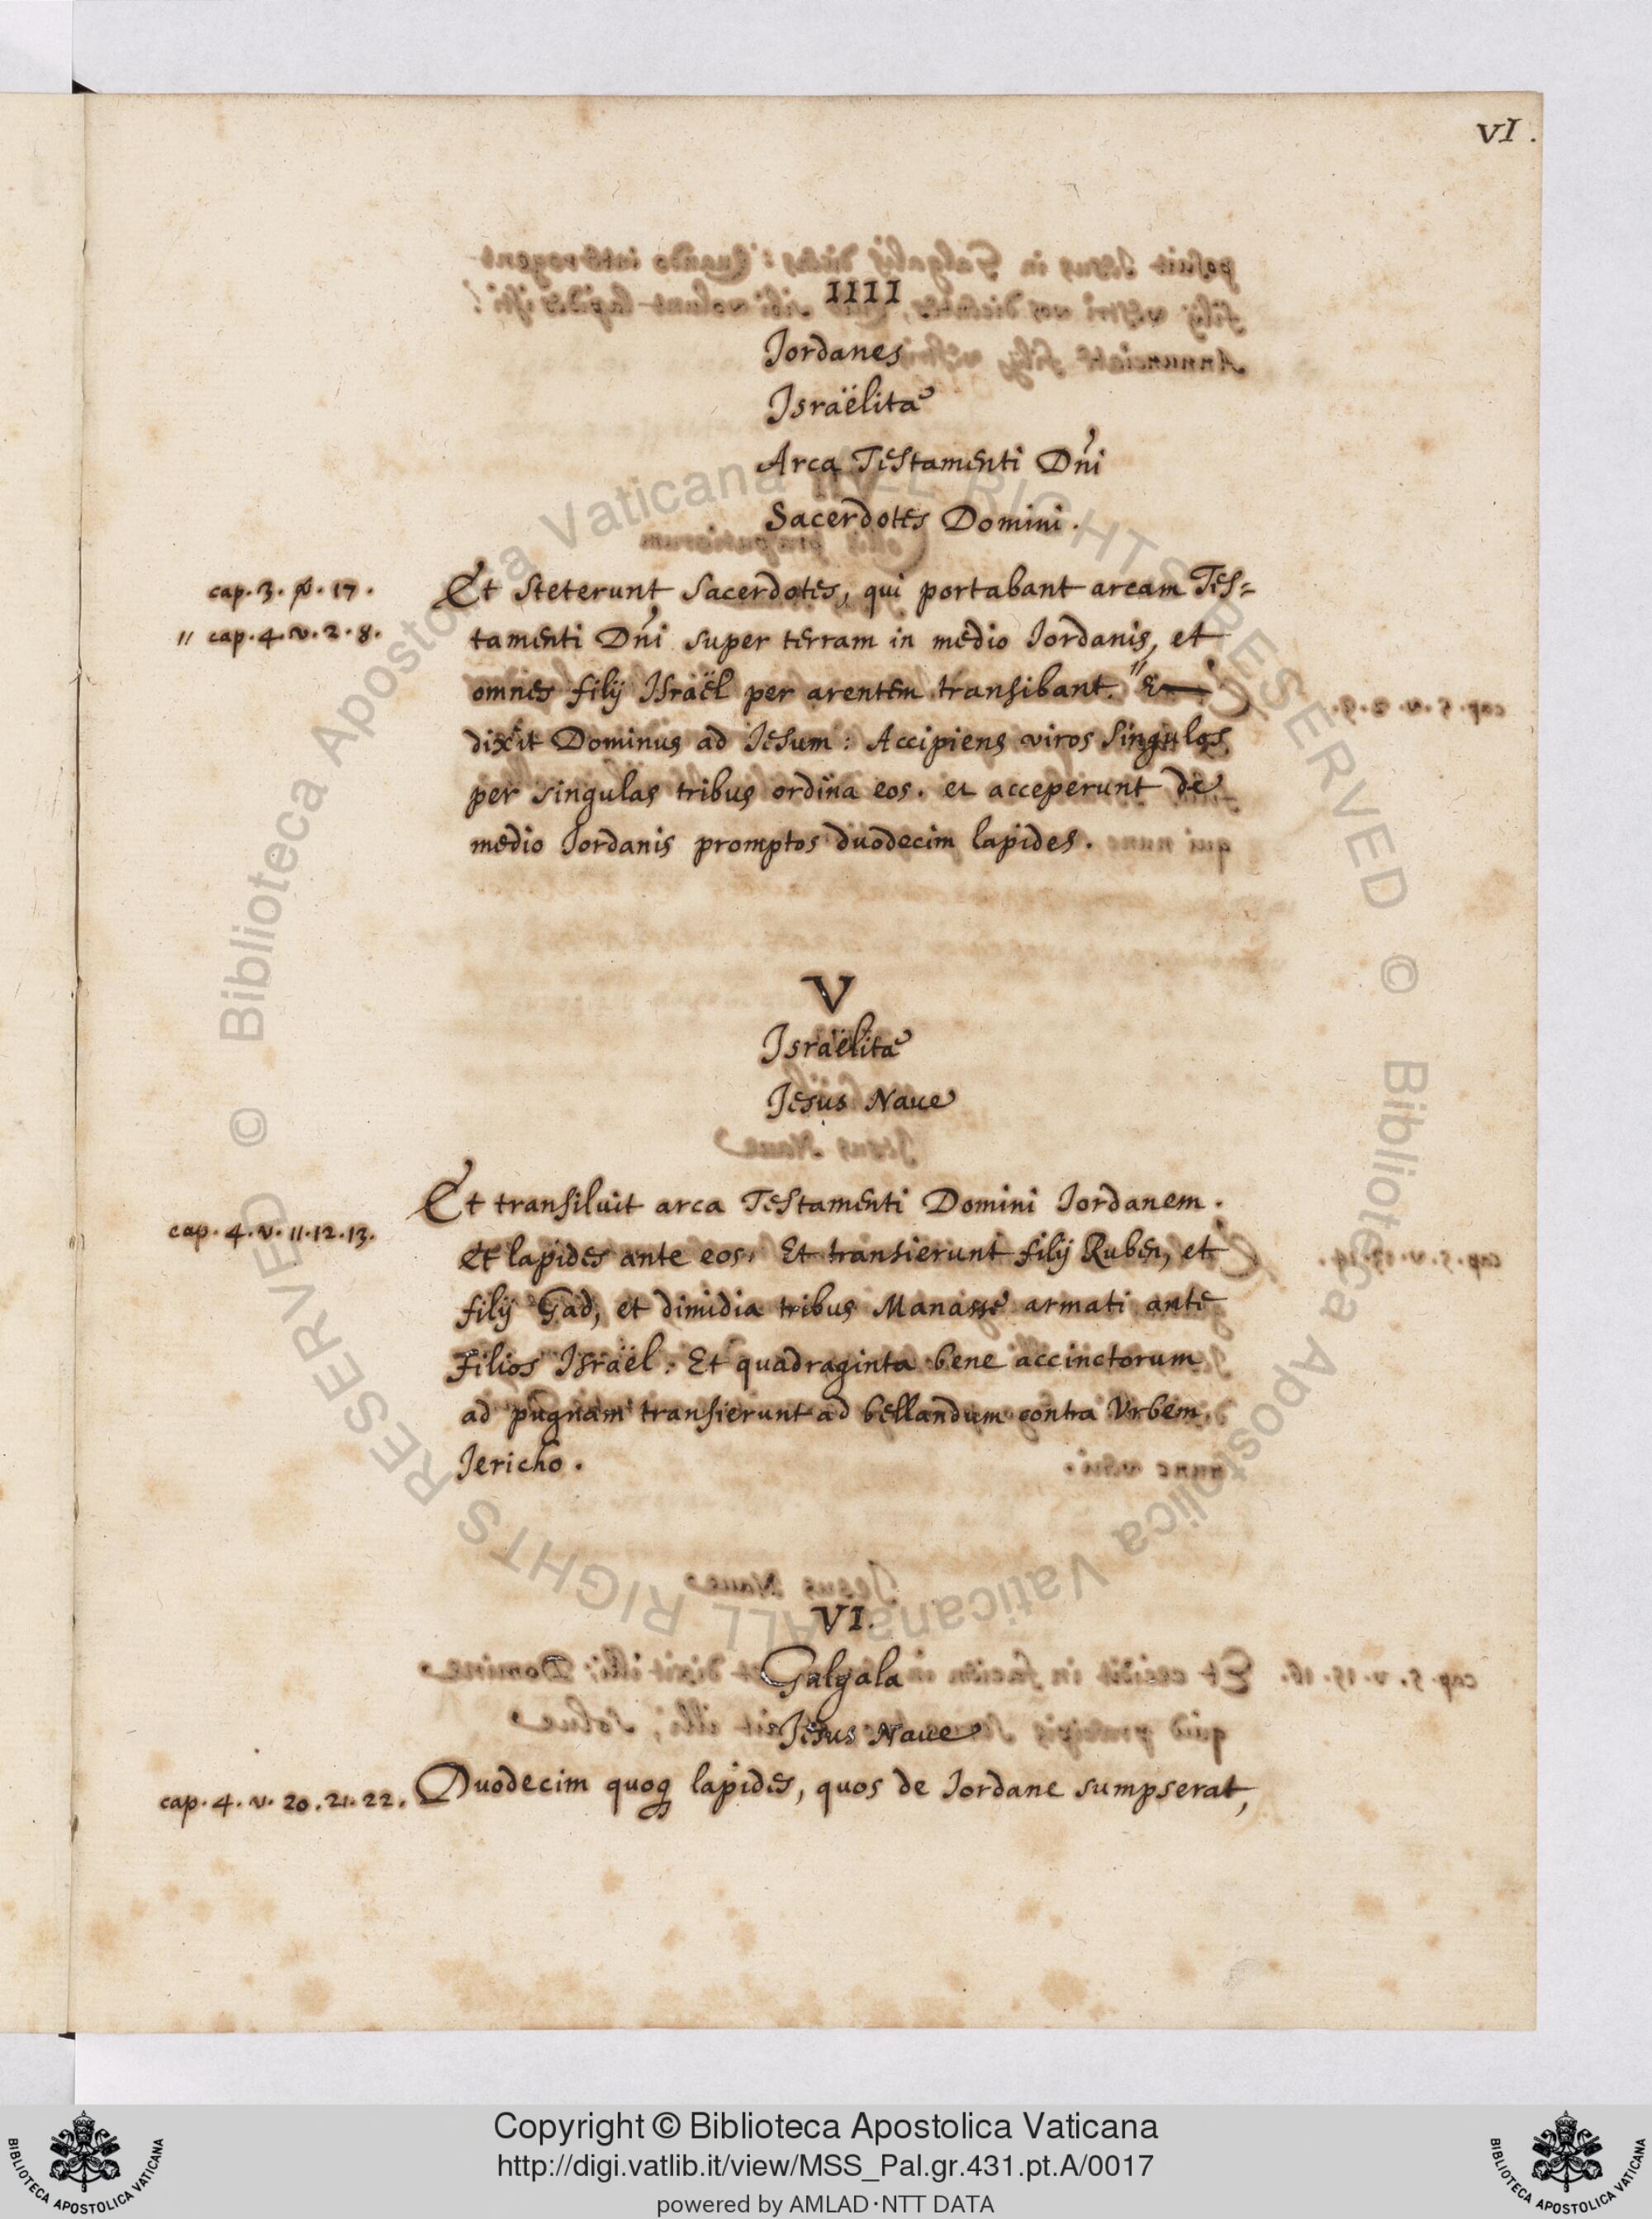 VI.
IIII
Jordanes
Israëlitæ
Arca Testamenti Dñi
Sacerdotes Domini.
cap. 3. v. 17.
Et steterunt Sacerdotes, qui portabant arcam Tes=
" cap. 4. v. 2. 8.
tamenti Dñi super terram in medio Iordanis, et
omnes filij Israël per arentem transibant. "Et
dixit Dominus ad Iesum: Accipiens viros singulos
per singulas tribus ordina eos. et acceperunt de
medio Iordanis promptos duodecim lapides.
V
Israëlitæ
Jesus Naue
Et transiluit arca Testamenti Domini Iordanem.
cap. 4. v. 11. 12. 13.
et lapides ante eos. Et transierunt filij Ruben, et
filij Gad, et dimidia tribus Manasse armati ante
filios Israël: Et quadraginta bene accinctorum
ad pugnam transierunt ad bellandum contra Vrbem
Jericho.
VI.
Galgala
Jesus Naue
cap. 4. v. 20. 21. 22.
Duodecim quoq; lapides, quos de Iordane sumpserat,
© Biblioteca Apostolica Vaticana ALL RIGHTS RESERVED © Biblioteca Apostolica Vaticana ALL RIGHTS RESERVED
BIBLIOTECA APOSTOLICA VATICANA
Copyright © Biblioteca Apostolica Vaticana
http://digi.vatlib.it/view/MSS_Pal.gr.431.pt.A/0017
powered by AMLAD·NTT DATA
BIBLIOTECA APOSTOLICA VATICANA